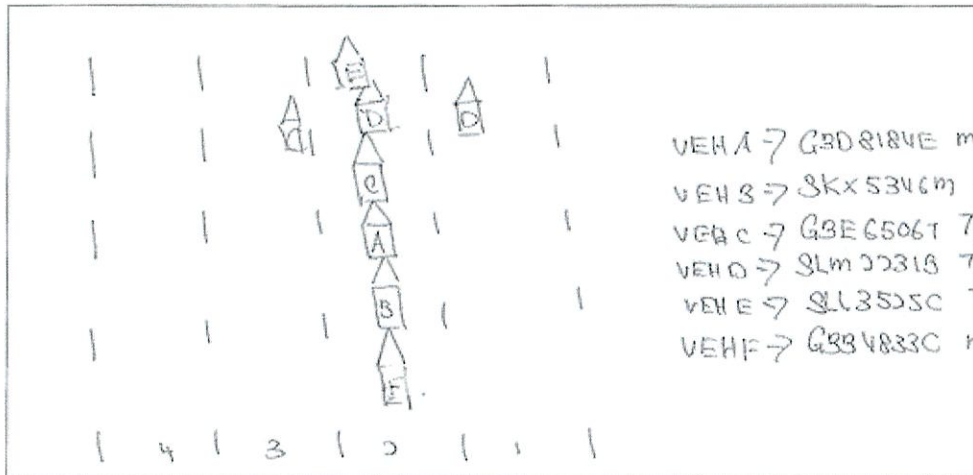 E
D
D
C
A
B
F
VEH A → GBD8184E
VEH B → SKX5346M
VEH C → GBE6506T
VEH D → SLM2231B
VEH E → SLL3525C
VEH F → GBB4833C
4 3 2 1